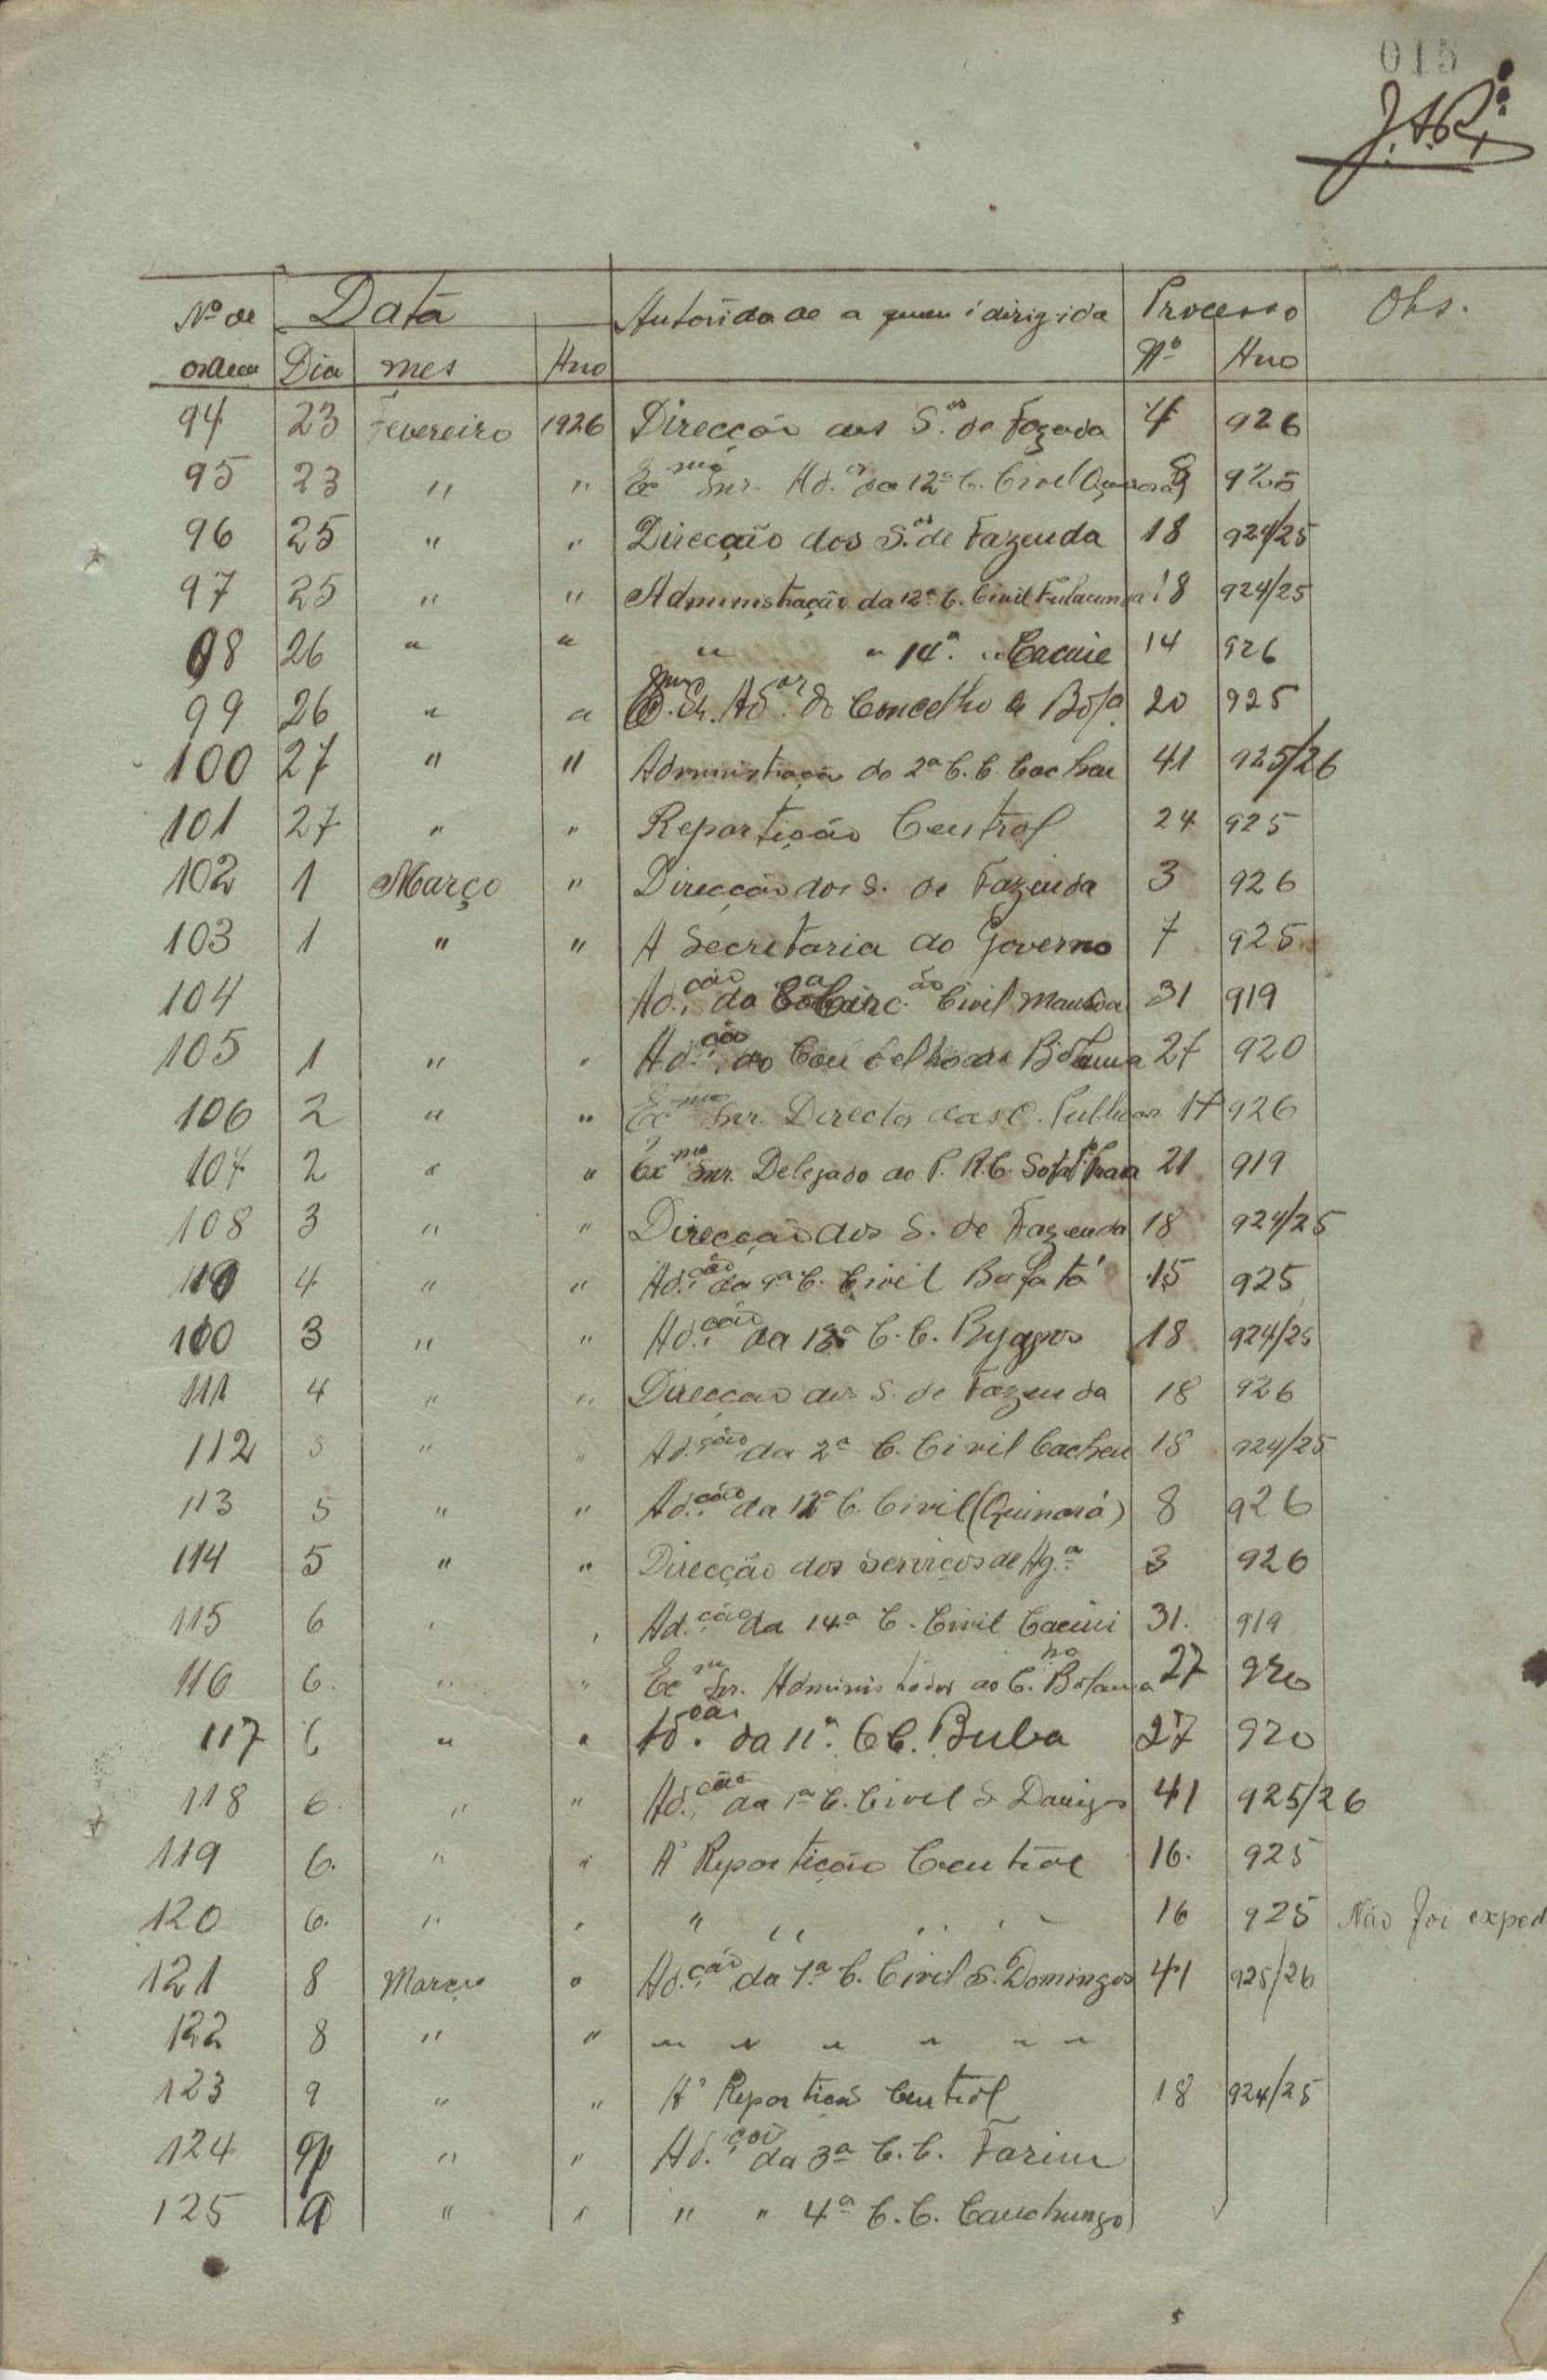 015
Nº de Data Autoridade a quem é dirigida Processo Obs.
ordem Dia mes Ano Nº Ano
94 23 Fevereiro 1926 Direcção dos S.os de Fazenda 4 926
95 23 " " Exmo Snr. Ad.or da 12ª C. Civil 925
96 25 " " Direcção dos S.os de Fazenda 18 924/25
97 25 " " Administração da 12ª C. Civil Fulacunda 18 924/25
98 26 " " " " 14ª " Cacine 14 926
99 26 " " Exmo Sr. Ad.or do Concelho de Bol.a 20 925
100 27 " " Administração da 2ª C. C. Cacheu 41 925/26
101 27 " " Repartição Central 24 925
102 1 Março " Direcção dos S. de Fazenda 3 926
103 1 " " A Secretaria do Governo 7 925
104 Ad.ção da Circ.ão Civil Mansôa 31 919
105 1 " " Ad.ção do Concelho de Bolama 27 920
106 2 " " Exmo Snr. Director das O. Publicas 17 926
107 2 " " Exmo Snr. Delegado do P. R. C. 21 919
108 3 " " Direcção dos S. de Fazenda 18 924/25
110 4 " " Ad.ção da 9ª C. Civil Bafatá 15 925
100 3 " " Ad.ção da 13ª C. C. Byagos 18 924/25
111 4 " " Direcção dos S. de Fazenda 18 926
112 5 " " Ad.ção da 2ª C. Civil Cacheu 18 924/25
113 5 " " Ad.ção da 12ª C. Civil (Quinará) 8 926
114 5 " " Direcção dos Serviços de Ag.ª 3 926
115 6 " " Ad.ção da 14ª C. Civil Cacini 31. 919
116 6. " " Exmo Snr. Administrador do C.ho Bolama 27 920
117 6 " " Ad.ção da 11ª C C. Buba 27 920
118 6. " " Ad.ção da 1ª C. Civil S Domigs 41 925/26
119 6. " " A' Repartição Central 16. 925
120 6. " " " " " " " 16 925 Não foi exped
121 8 Março " Ad.ção da 1.ª C. Civil S. Domingos 41 925/26
122 8 " " " " " " " "
123 9 " " A' Repartição Central 18 924/25
124 9 " " Ad.ção da 3ª C. C. Farim
125 9 " " " " 4ª C. C. Canchungo